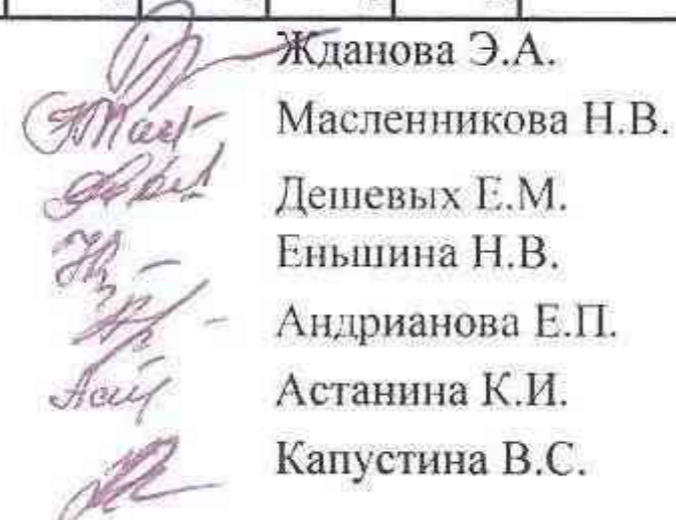 Жданова Э.А.
Масленникова Н.В.
Дешевых Е.М.
Еньшина Н.В.
Андрианова Е.П.
Астанина К.И.
Капустина В.С.